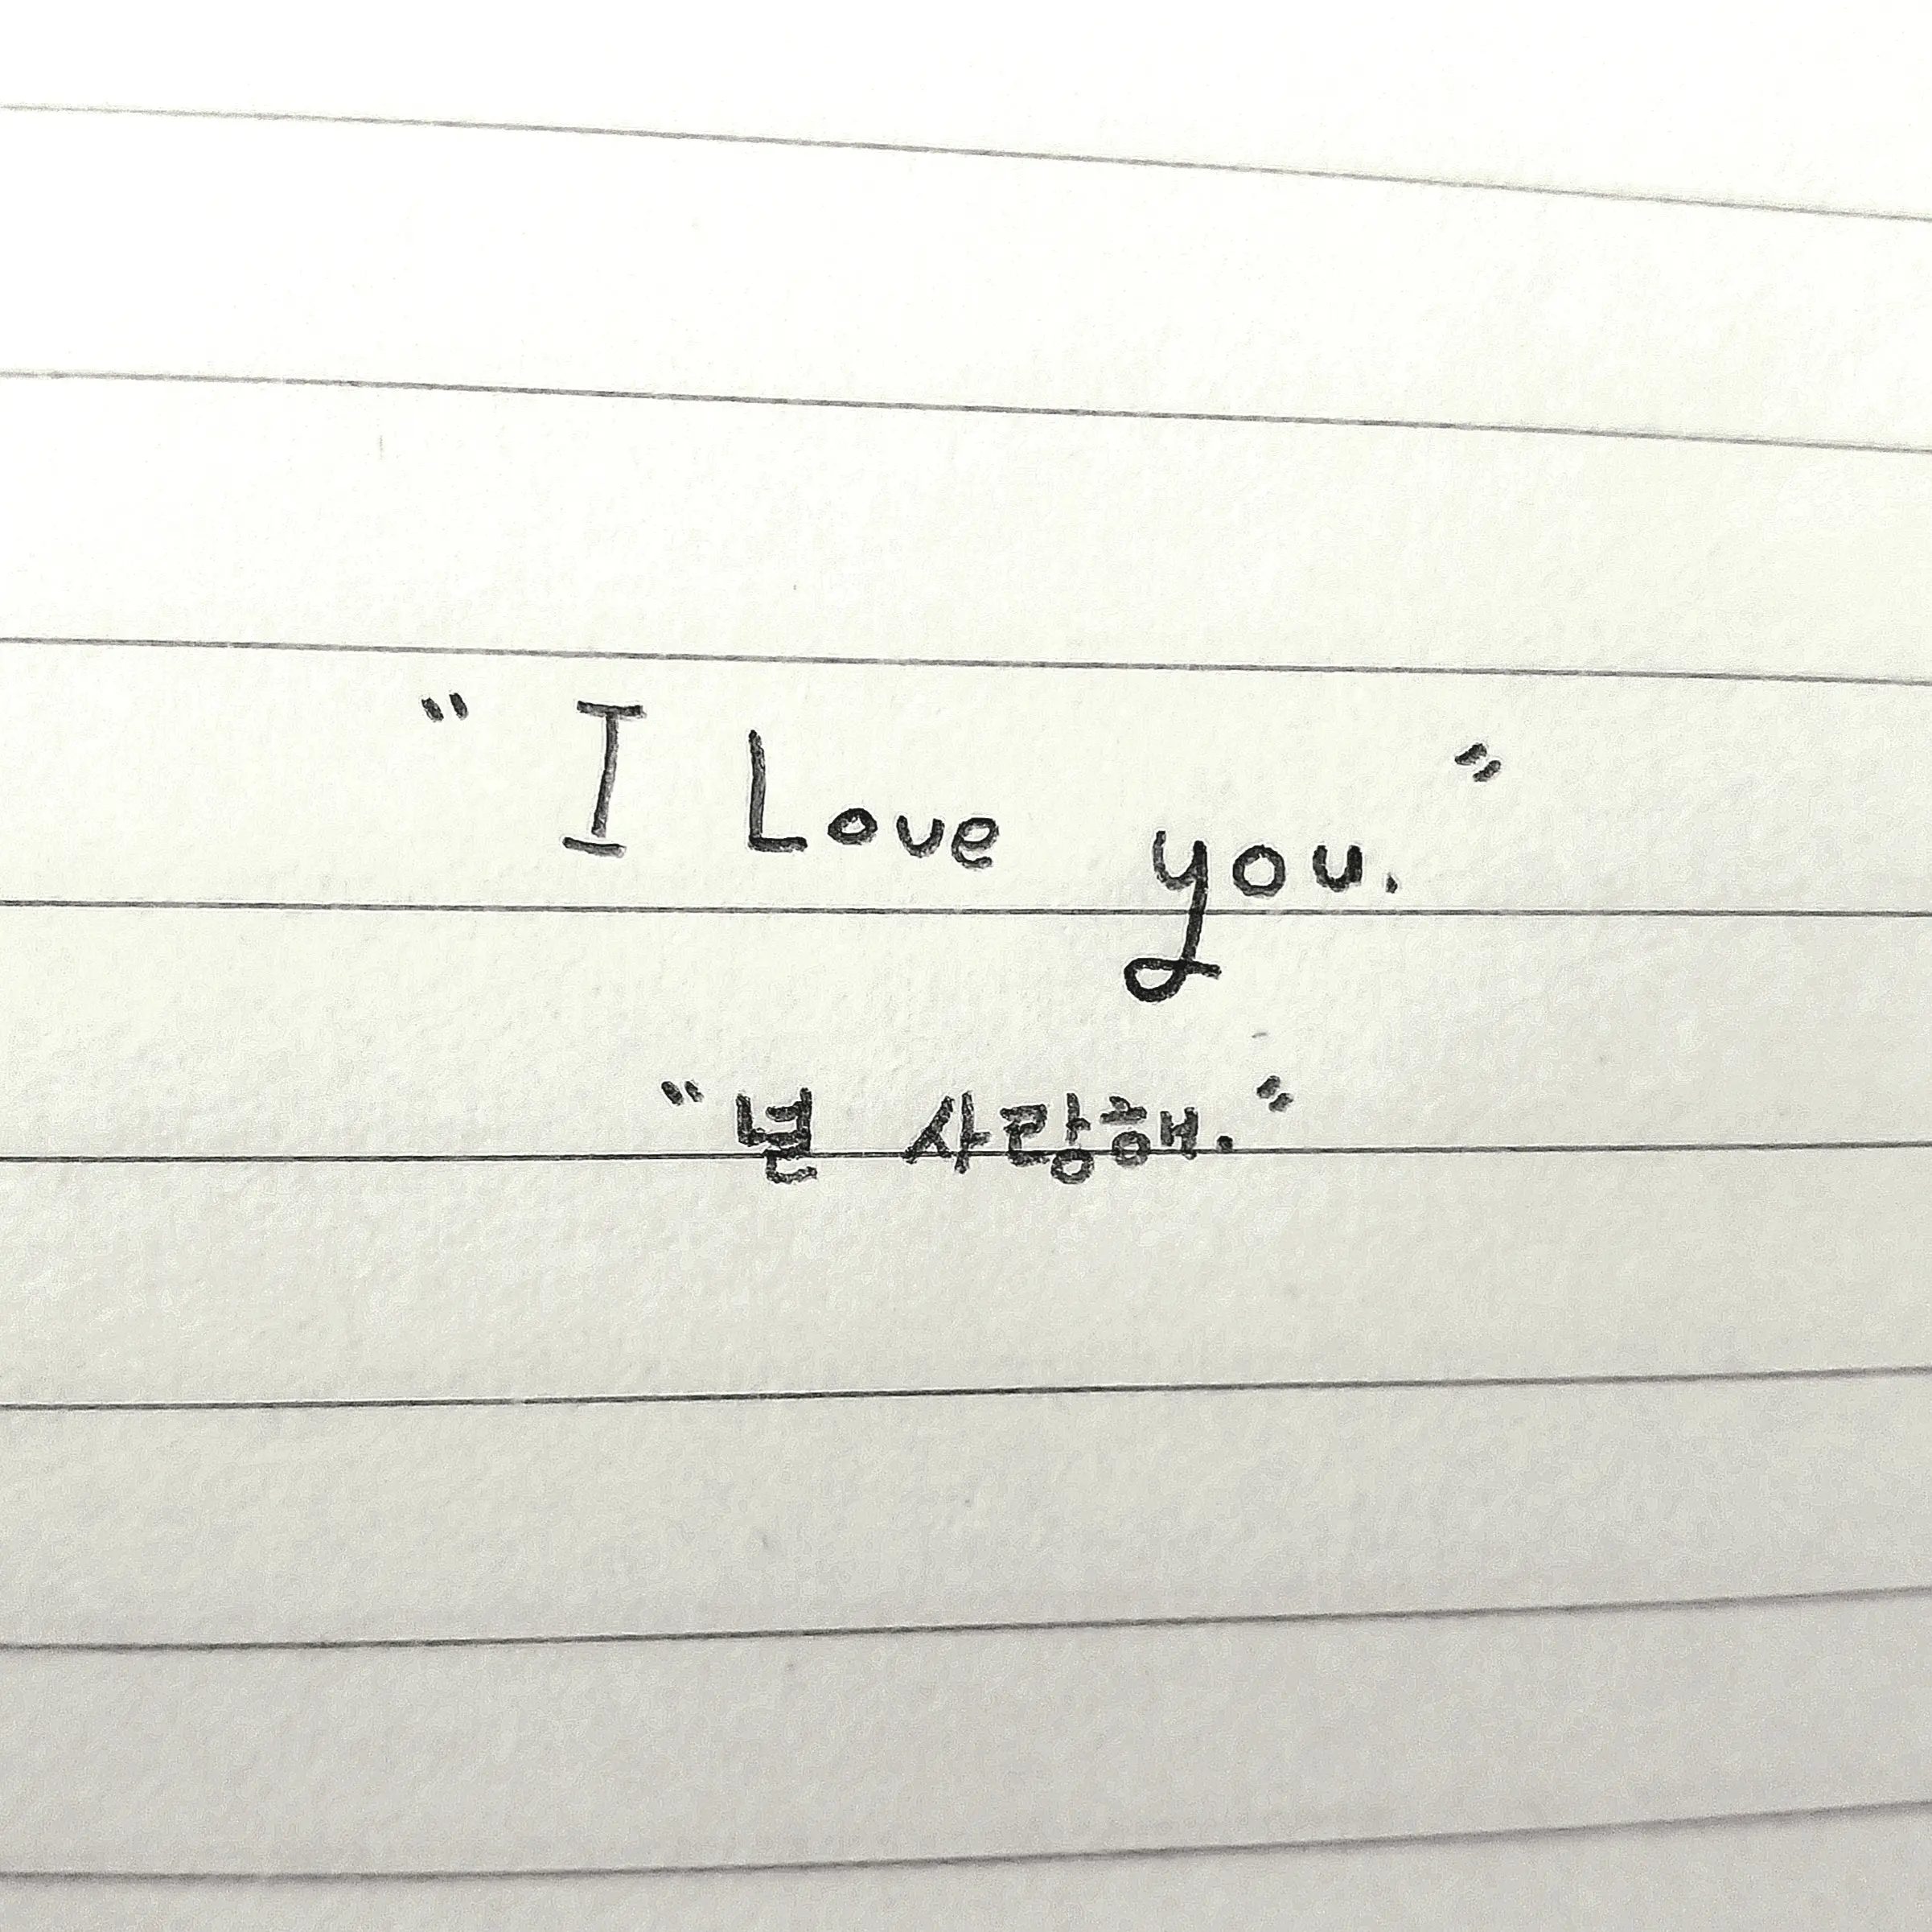 “ I Love you. ”
“ 널 사랑해. ”